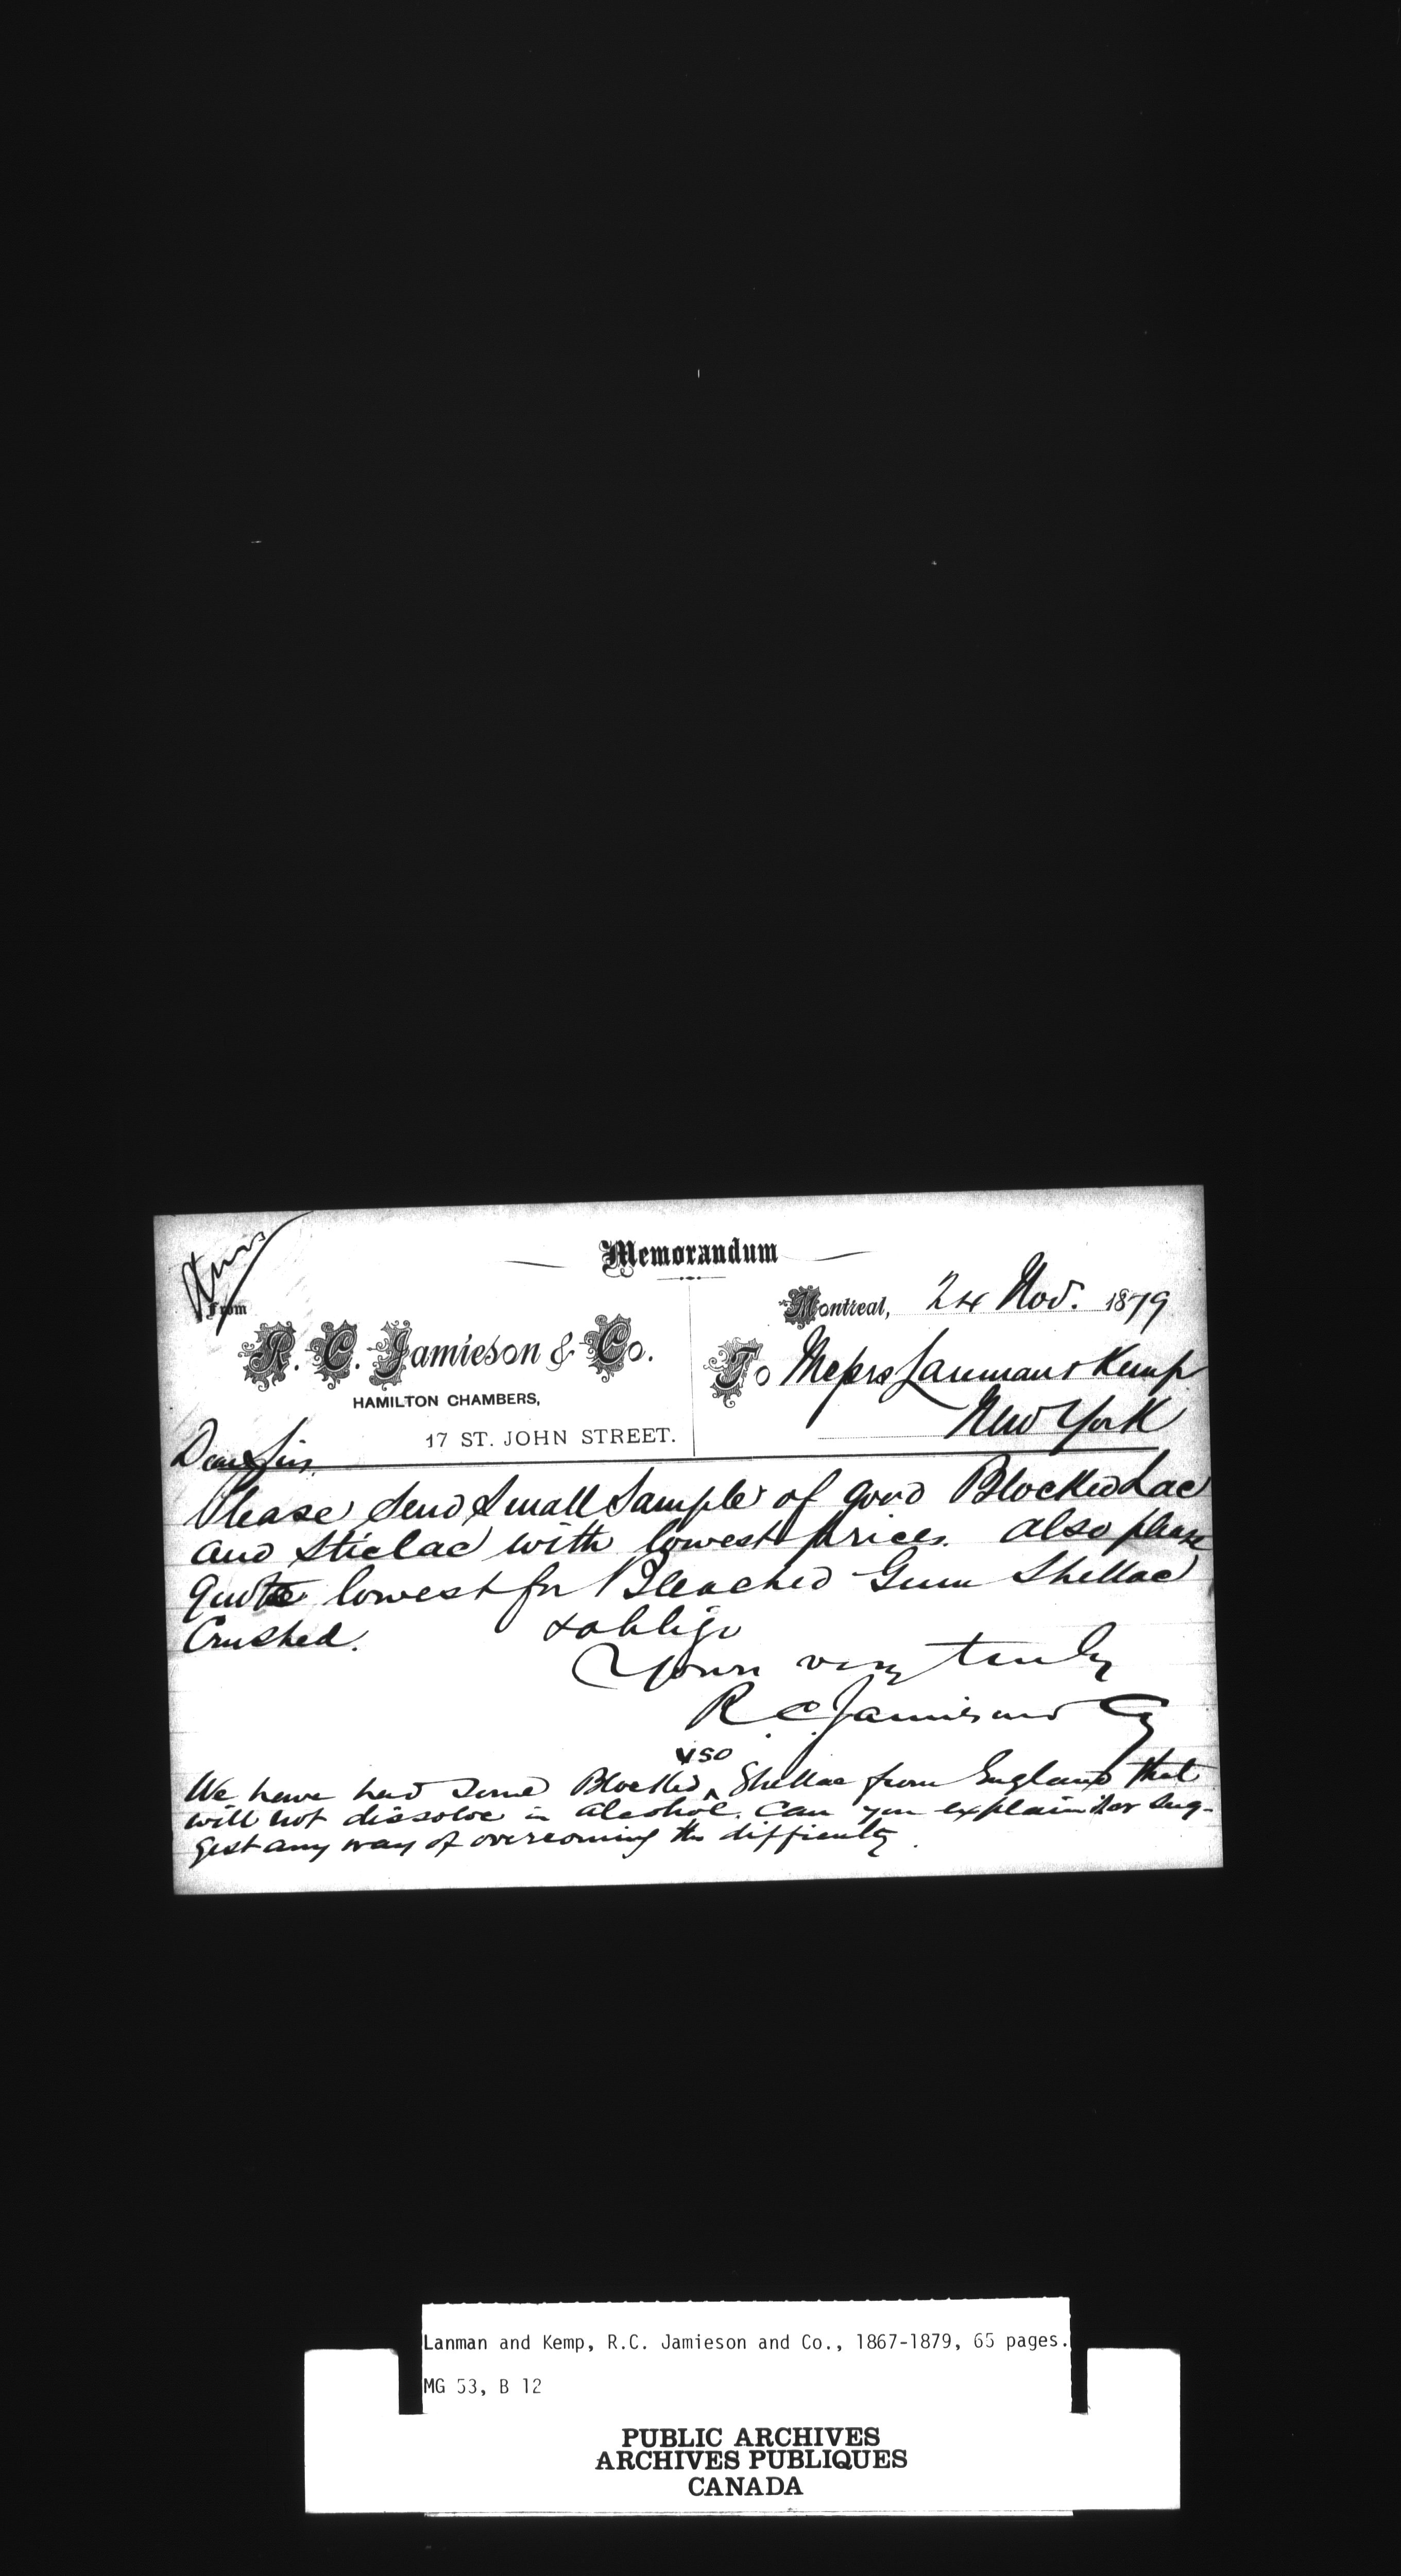 Memorandum
From
Montreal, 24 Nov. 1879
R. C. Jamieson & Co.
HAMILTON CHAMBERS,
17 ST. JOHN STREET.
To Messrs Lanman & Kemp
New York
Dear Sirs
Please Send Small Sample of good Blocked Lac
and Sticlac with lowest prices. also please
quote lowest for Bleached Gum Shellac
Crushed.
& oblige
Yours very truly
R. C. Jamieson & Co
VSO
We have had some Blocked ‸ Shellac from England that
will not dissolve in alcohol. Can you explain it or sug-
gest any way of overcoming the difficulty.
Lanman and Kemp, R.C. Jamieson and Co., 1867-1879, 65 pages.
MG 53, B 12
PUBLIC ARCHIVES
ARCHIVES PUBLIQUES
CANADA